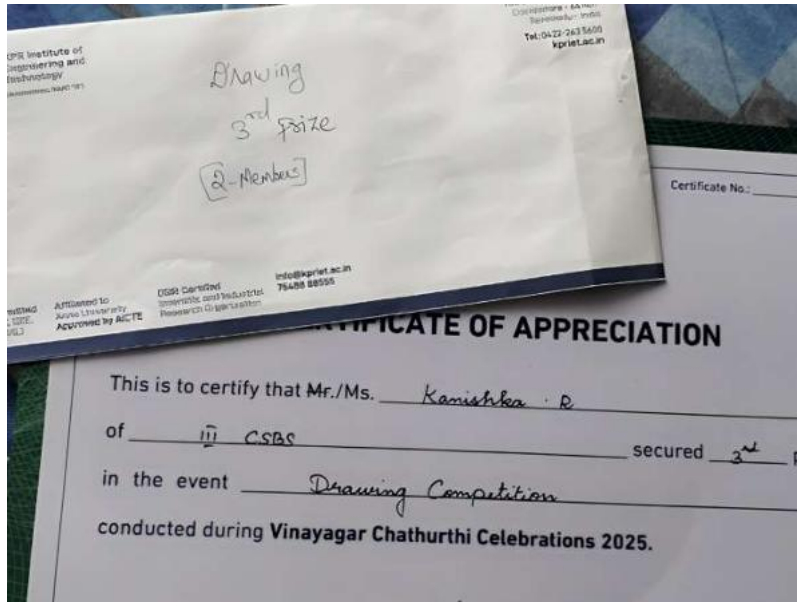 KPR Institute of
Engineering and
Technology
Tel:0422-263 5600
kpriet.ac.in
Drawing
3rd Prize
[2-Members]
Affiliated to
Anna University
Approved by AICTE
DSIR Certified
Scientific and Industrial
Research Organisation
info@kpriet.ac.in
75488 88555
Certificate No.:
TIFICATE OF APPRECIATION
This is to certify that Mr./Ms. Kanishka . R
of III CSBS secured 3rd
in the event Drawing Competition
conducted during Vinayagar Chathurthi Celebrations 2025.